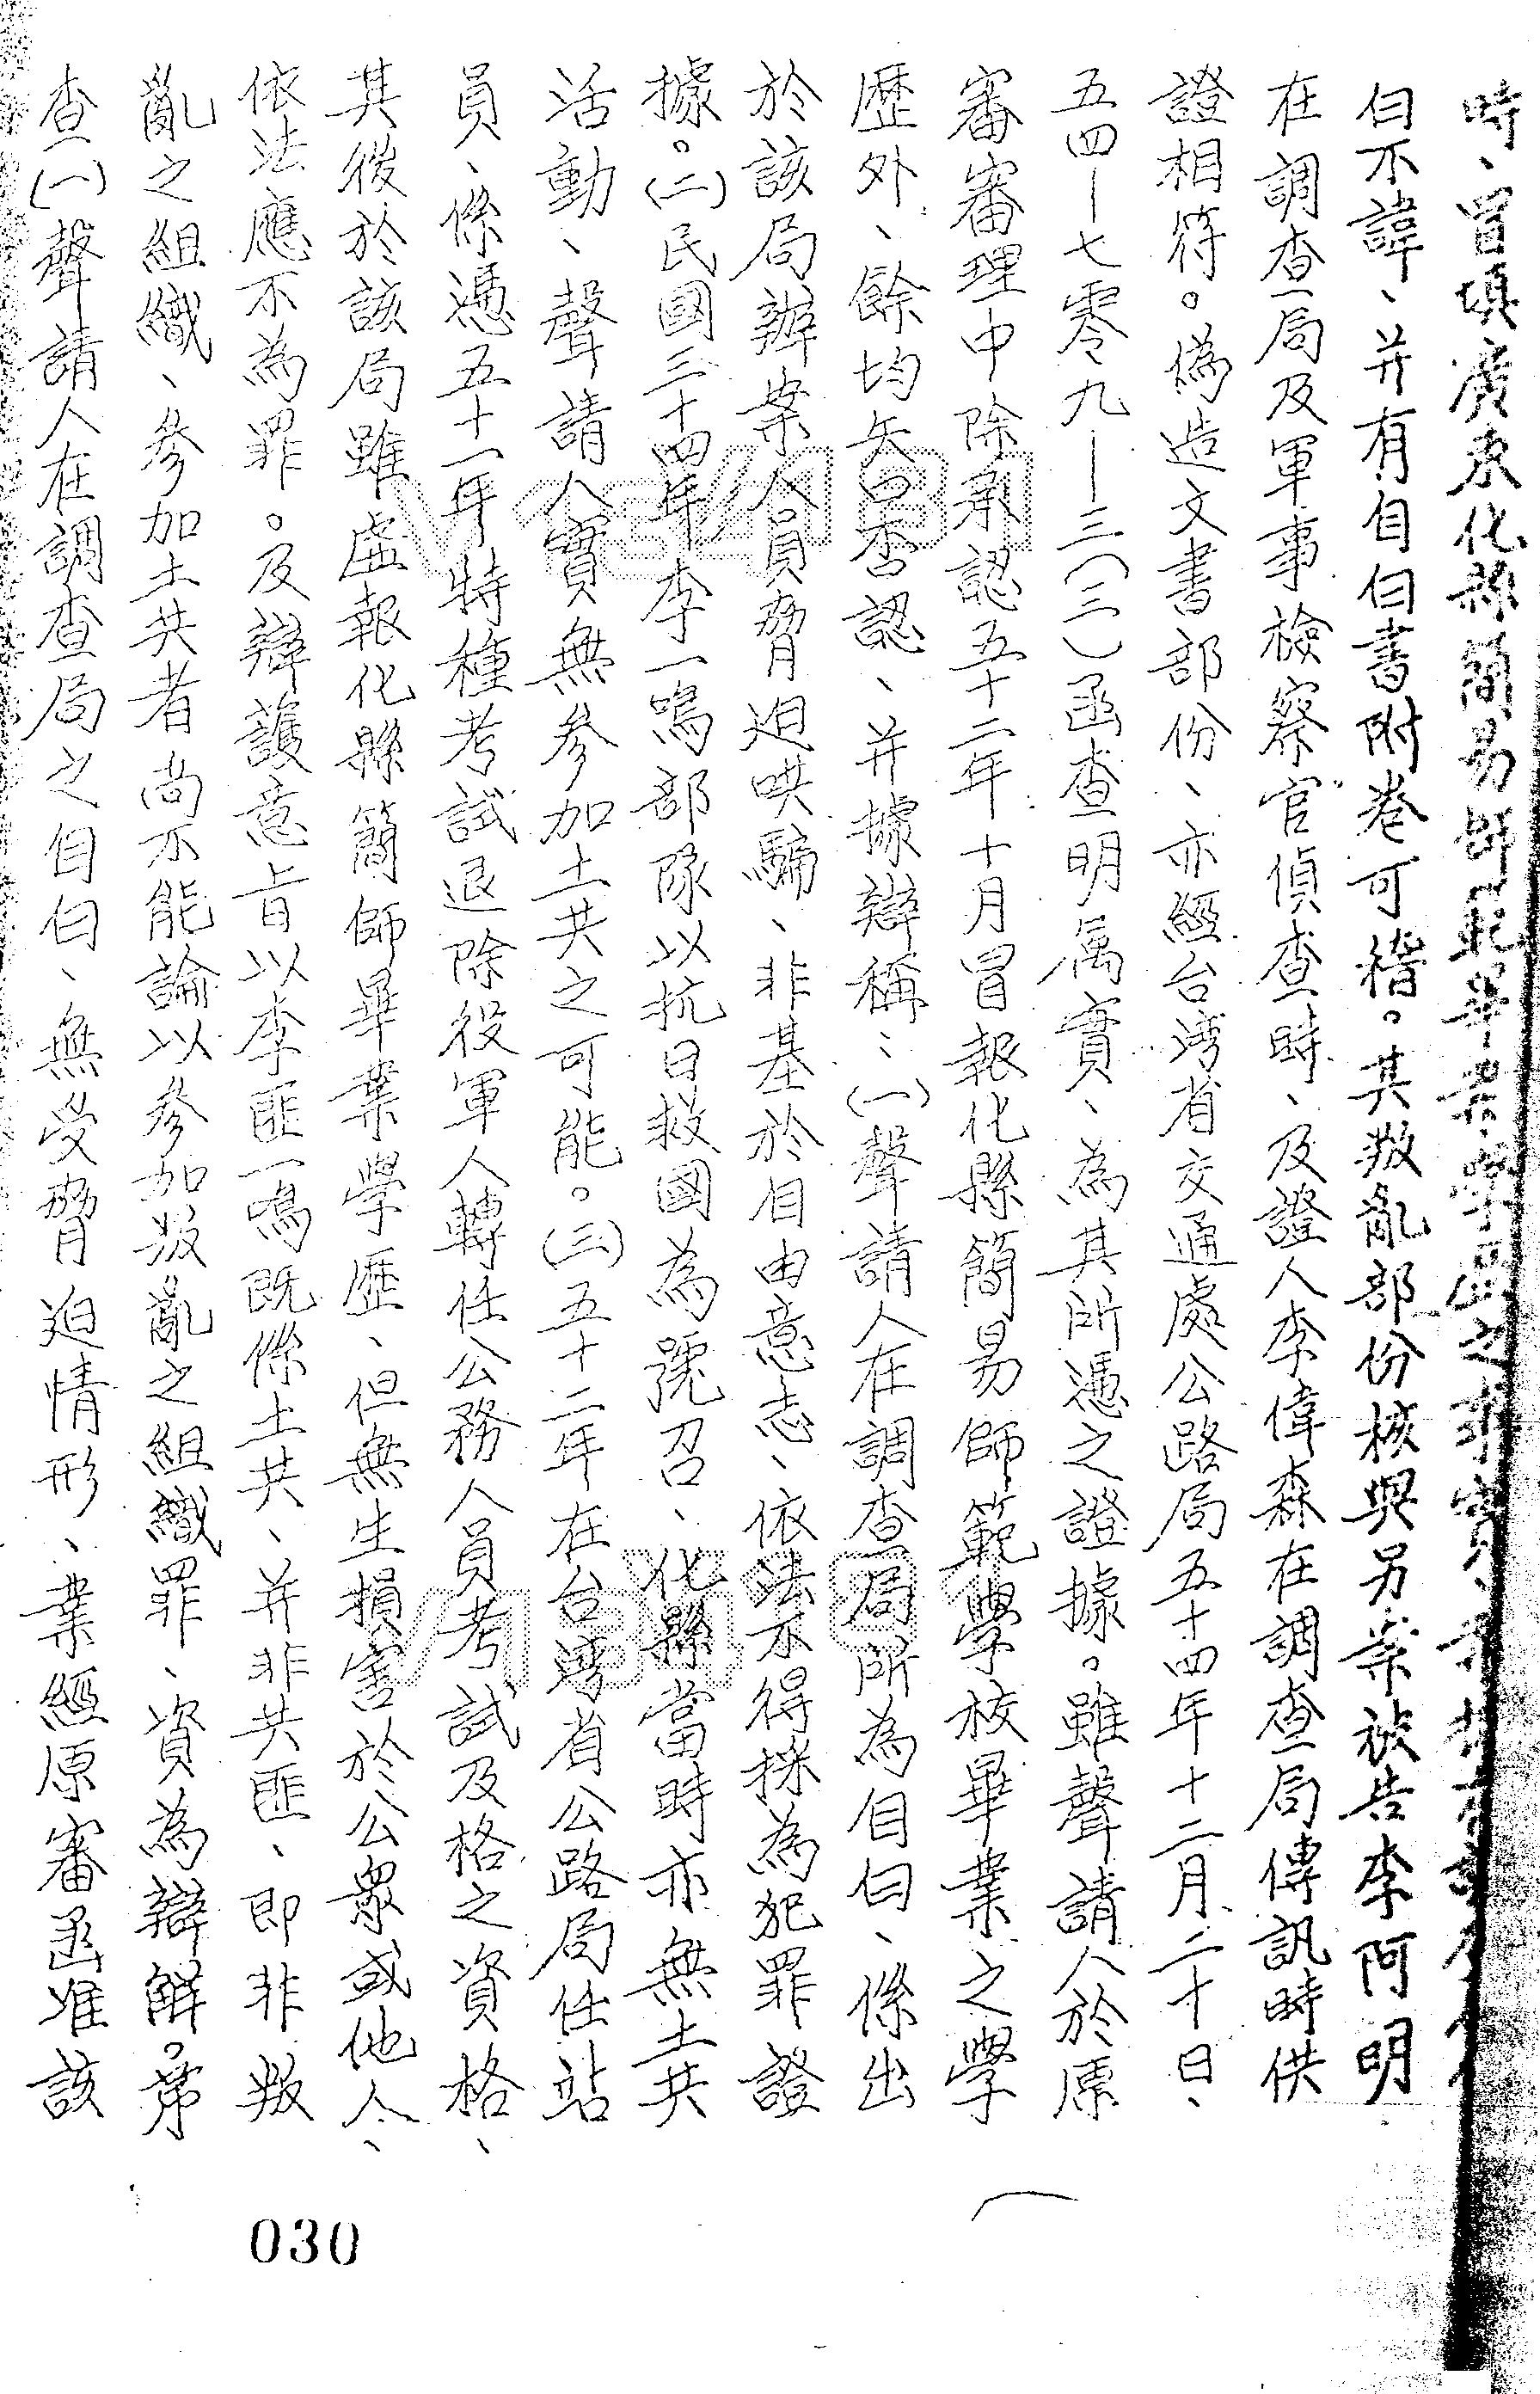 時、冒填廣東化縣簡易師範畢業學歷之事實
白不諱、并有自白書附卷可稽。其叛亂部份核與另案被告李阿明
在調查局及軍事檢察官偵查時、及證人李偉森在調查局傳訊時供
證相符。偽造文書部份、亦經台湾省交通處公路局五十四年十二月二十日、
五四—七零九—三(三)函查明属實、為其所憑之證據。雖聲請人於原
審審理中除承認五十二年十月冒報化縣簡易師範學校畢業之學
歷外、餘均矢口否認、并據辯稱：(一)聲請人在調查局所為自白、係出
於該局辦案人員脅迫哄騙、非基於自由意志、依法不得採為犯罪證
據。(二)民國三十四年李一鳴部隊以抗日救國為號召、化縣當時亦無土共
活動、聲請人實無參加土共之可能。(三)五十二年在台湾省公路局任站
員、係憑五十一年特種考試退除役軍人轉任公務人員考試及格之資格、
其後於該局雖虛報化縣簡師畢業學歷、但無生損害於公眾或他人、
依法應不為罪。及辯護意旨以李匪一鳴既係土共、并非共匪、即非叛
亂之組織、參加土共者尚不能論以參加叛亂之組織罪、資為辯解。第
查(一)聲請人在調查局之自白、無受脅迫情形、業經原審函准該
030
V134131
V134131